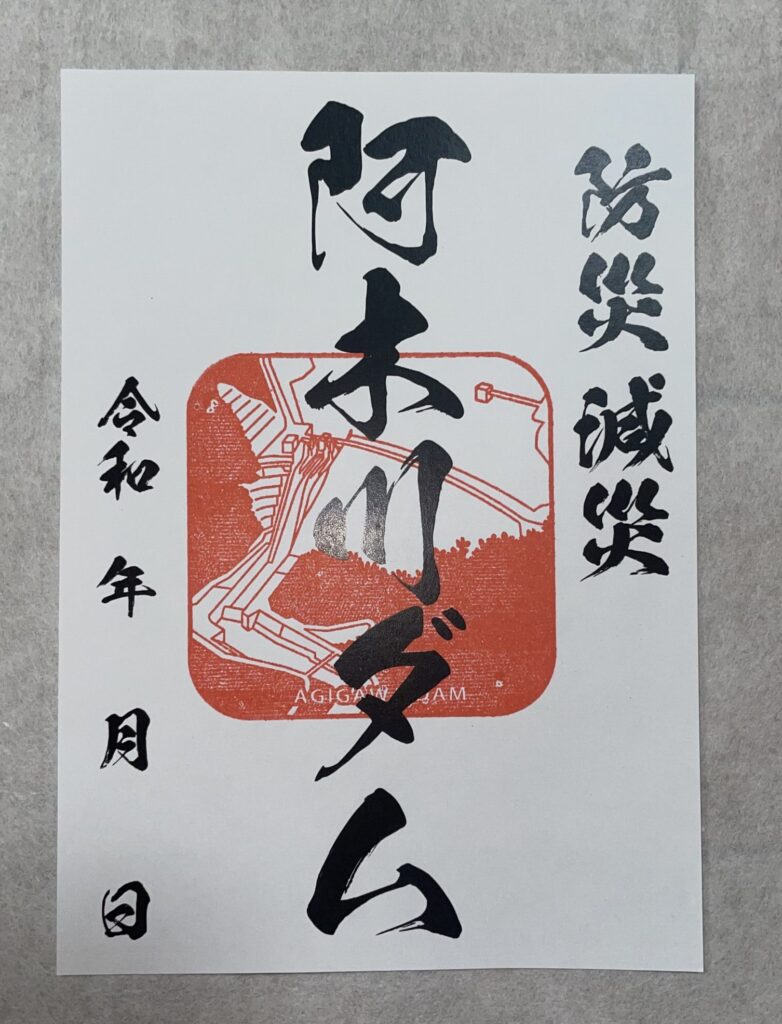 防災減災
阿木川ダム
AGIGAWA DAM
令和 年 月 日